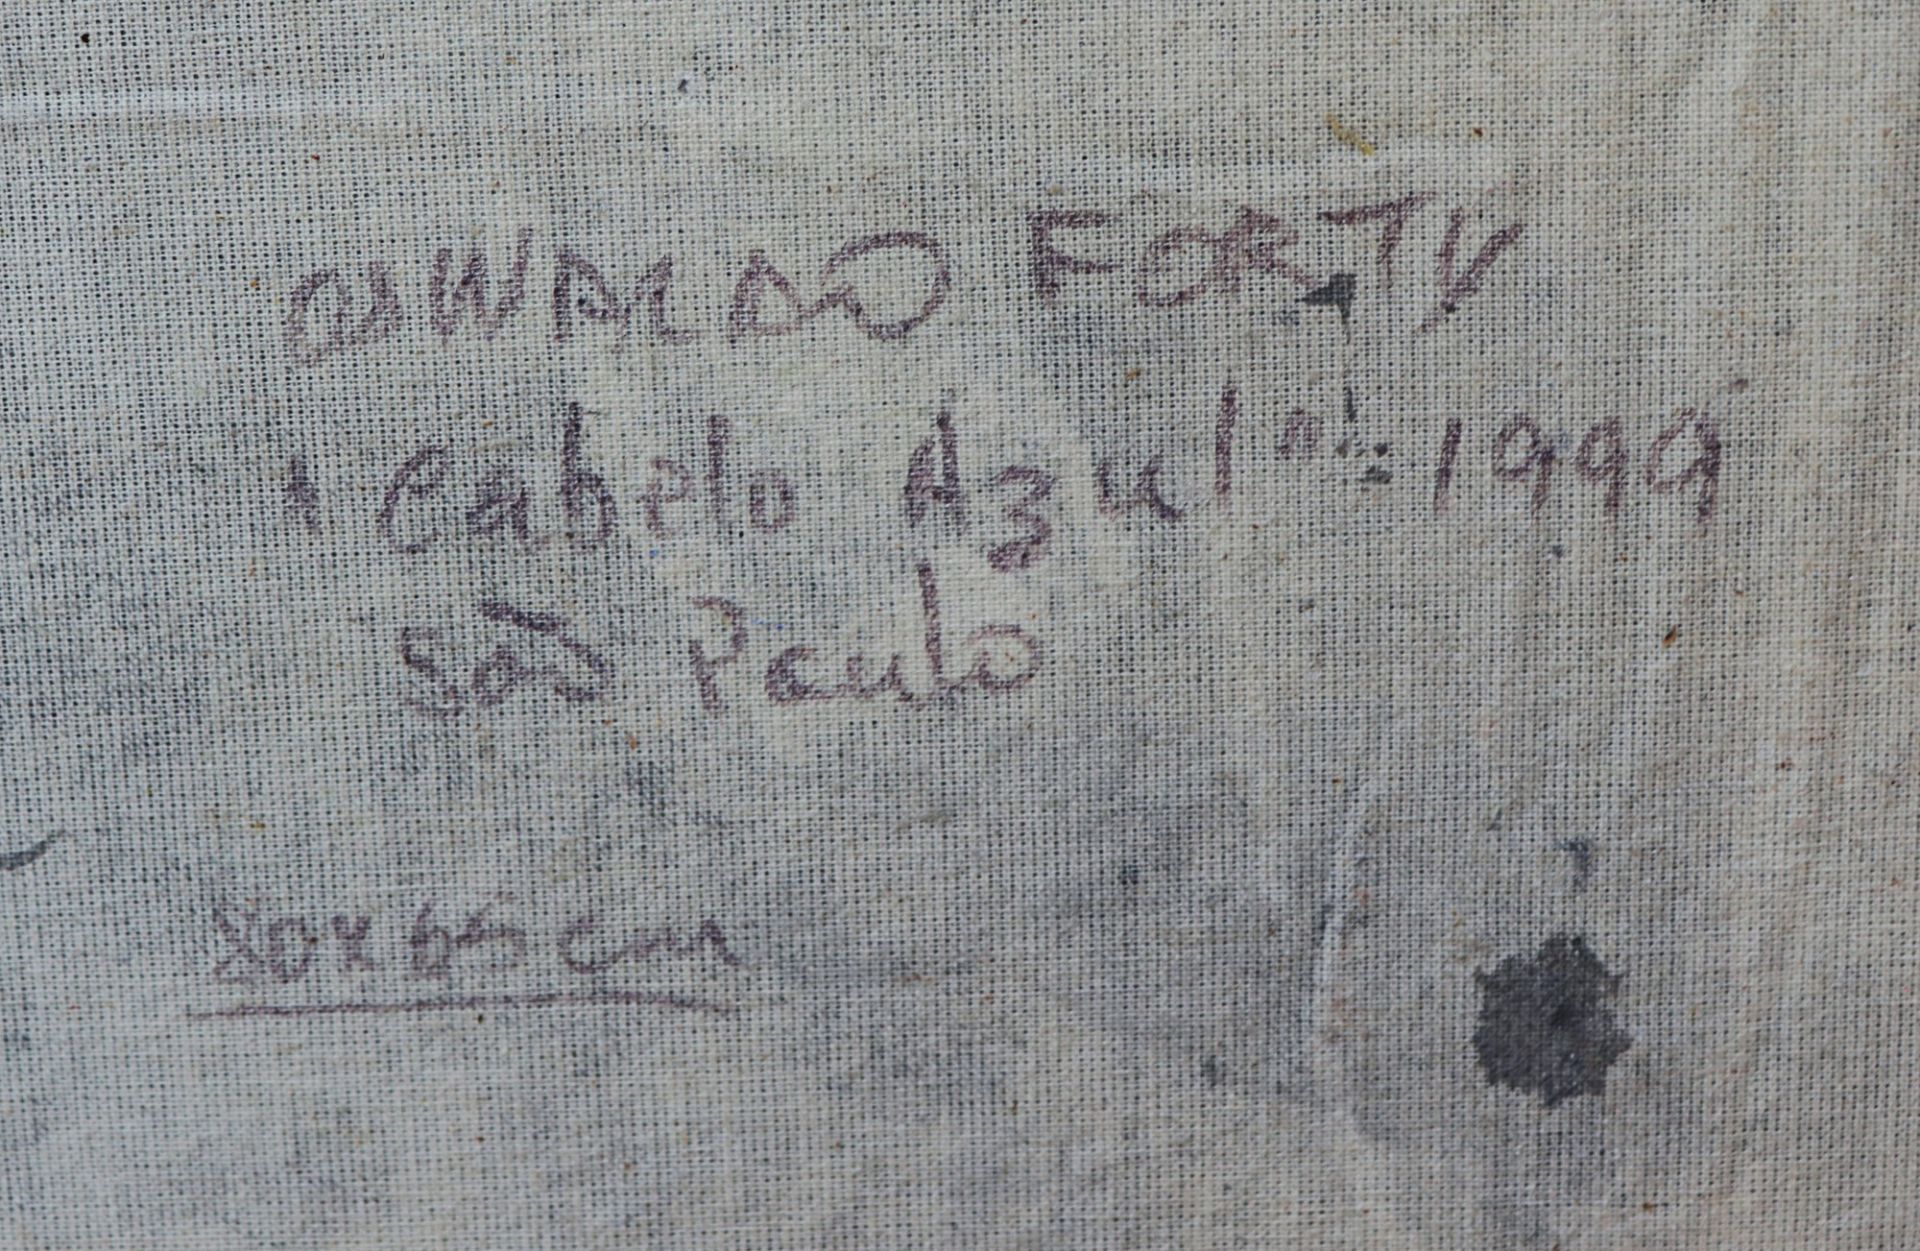 OSWALDO FORTY
"Cabelo Azul" 1999
São Paulo
80x65cm